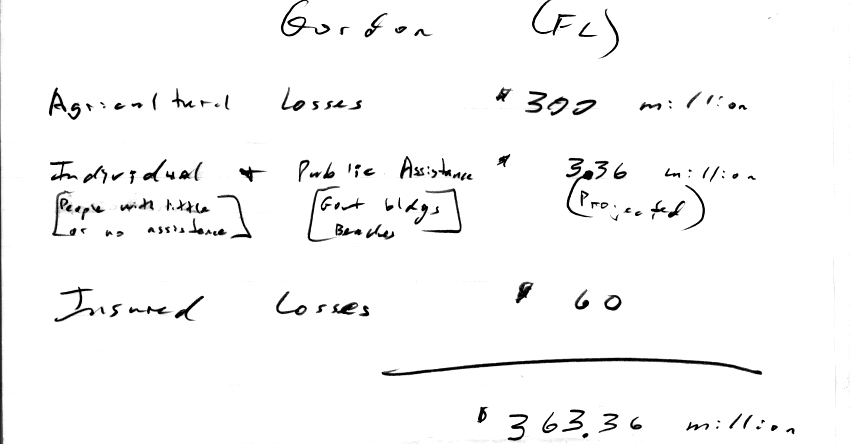 Gordon (FL)
Agricultural Losses $ 300 million
Individual + Public Assistance $ 3.36 million
[People with little or no assistance] [Govt bldgs Beaches] (Projected)
Insured Losses $ 60
$ 363.36 million